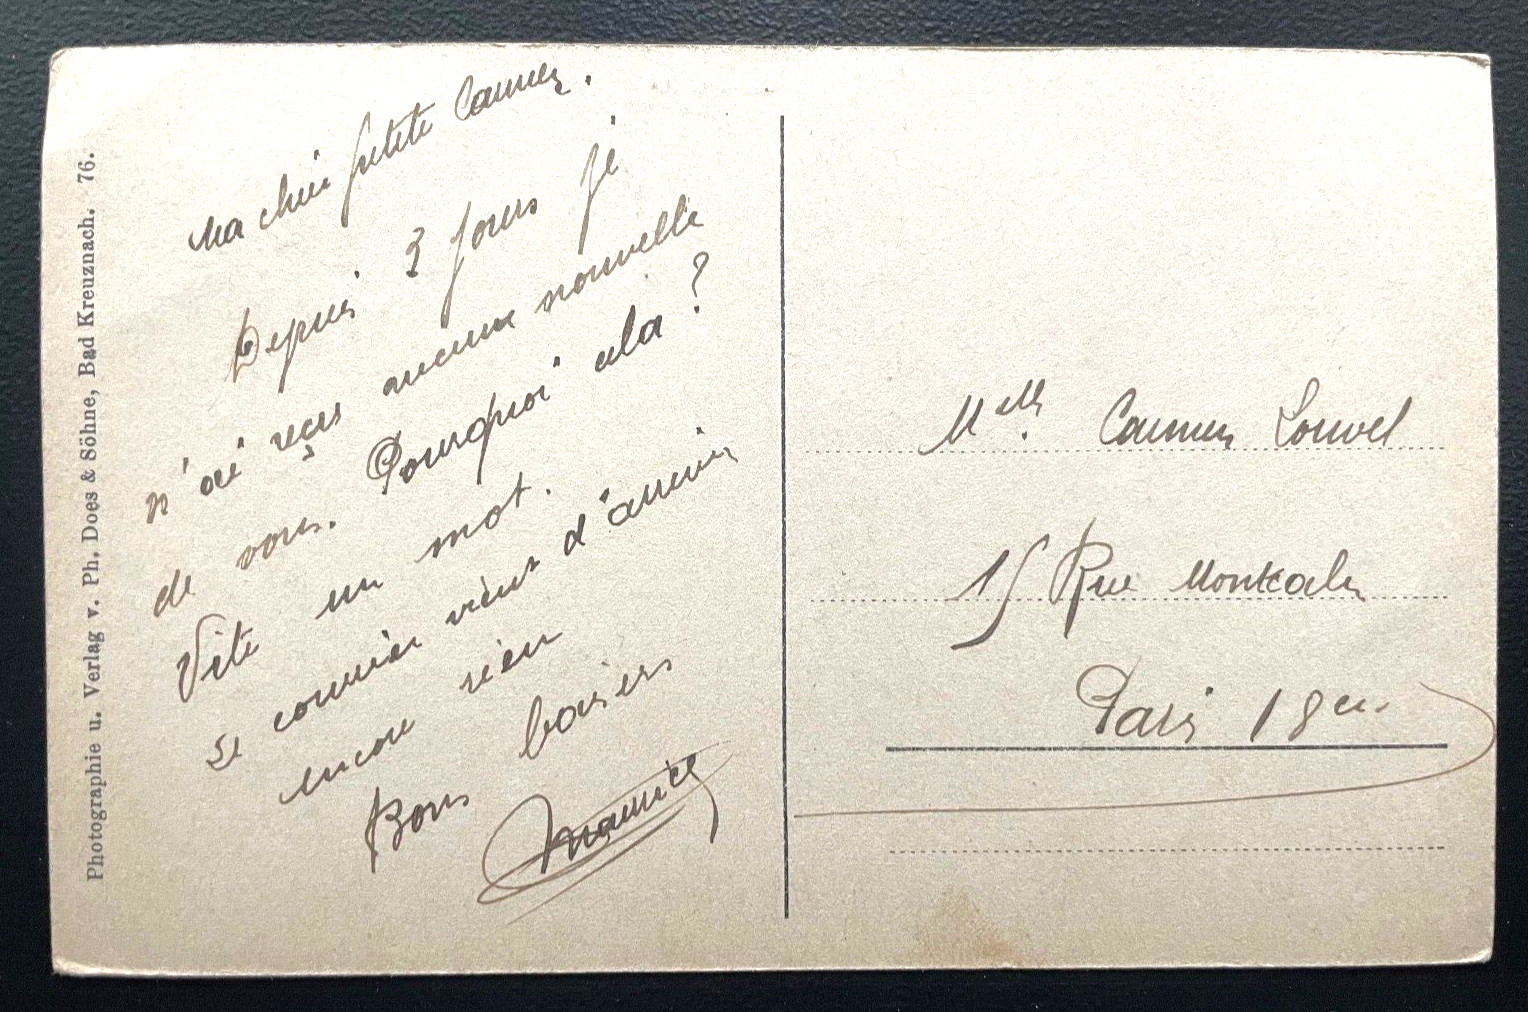 Photographie u. Verlag v. Ph. Does & Söhne, Bad Kreuznach. 76.
Ma chère petite Carmen.
Depuis 3 jours je
n'ai reçus aucune nouvelle
de vous. Pourquoi cela ?
Vite un mot.
Le courrier vient d'arriver
encore rien
Bons baisers
Maurice
Melle. Carmen Louvel
15 Rue Montcalm
Paris 18em.